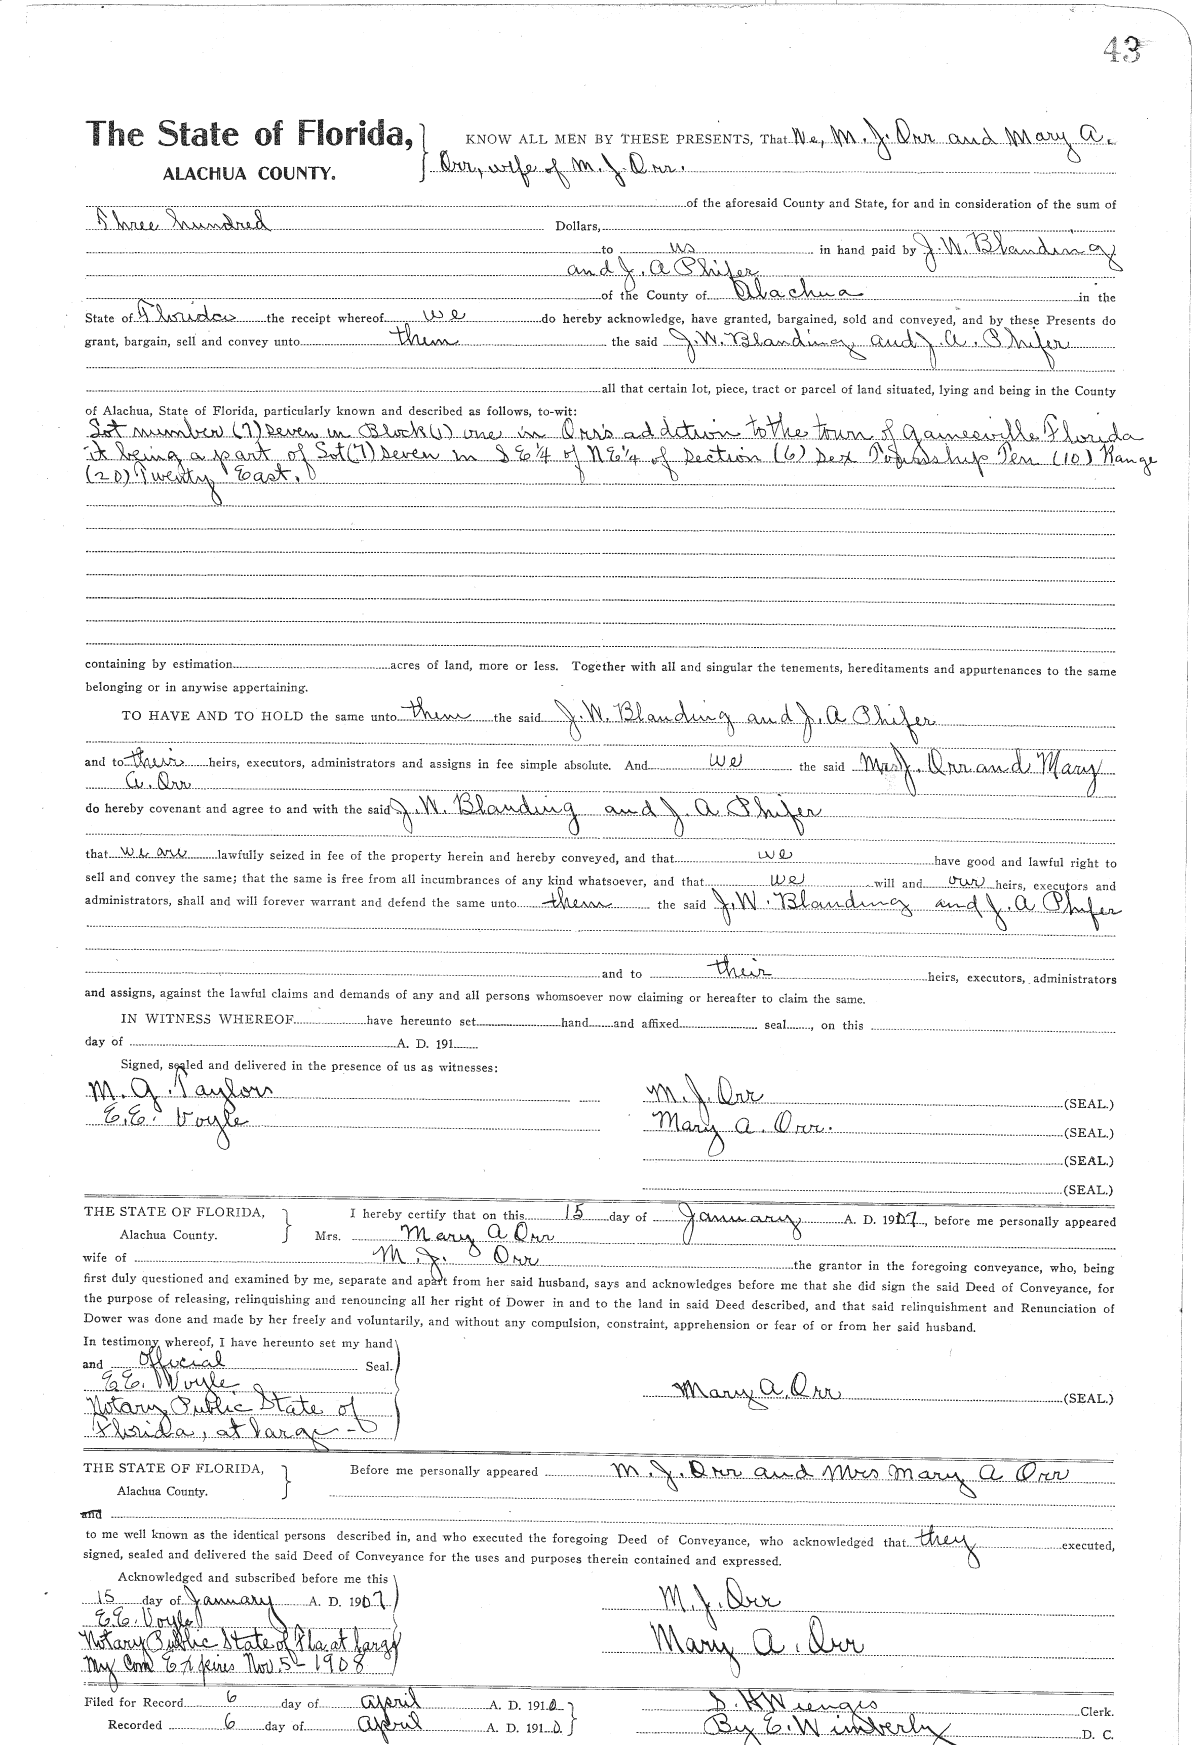 43
The State of Florida, KNOW ALL MEN BY THESE PRESENTS, That We, M. J. Orr and Mary A.
ALACHUA COUNTY. Orr, wife of M. J. Orr.
of the aforesaid County and State, for and in consideration of the sum of
Three hundred Dollars,
to us in hand paid by J. W. Blanding
and J. A Phifer
of the County of Alachua in the
State of Florida the receipt whereof we do hereby acknowledge, have granted, bargained, sold and conveyed, and by these Presents do
grant, bargain, sell and convey unto them the said J. W. Blanding and J. A. Phifer
all that certain lot, piece, tract or parcel of land situated, lying and being in the County
of Alachua, State of Florida, particularly known and described as follows, to-wit:
Lot number (7) seven in Block (1) one in Orr's addition to the town of Gainesville Florida
it being a part of Lot (7) seven in S E 1/4 of N E 1/4 of section (6) Sex Township Ten (10) Range
(20) Twenty East.
containing by estimation acres of land, more or less. Together with all and singular the tenements, hereditaments and appurtenances to the same
belonging or in anywise appertaining.
TO HAVE AND TO HOLD the same unto them the said J. W. Blanding and J. A Phifer
and to their heirs, executors, administrators and assigns in fee simple absolute. And we the said J. Orr and Mary
A. Orr
do hereby covenant and agree to and with the said J. W. Blanding and J. A Phifer
that we are lawfully seized in fee of the property herein and hereby conveyed, and that we have good and lawful right to
sell and convey the same; that the same is free from all incumbrances of any kind whatsoever, and that we will and our heirs, executors and
administrators, shall and will forever warrant and defend the same unto them the said J. W. Blanding and J. A Phifer
and to their heirs, executors, administrators
and assigns, against the lawful claims and demands of any and all persons whomsoever now claiming or hereafter to claim the same.
IN WITNESS WHEREOF have hereunto set hand and affixed seal , on this
day of A. D. 191
Signed, sealed and delivered in the presence of us as witnesses:
M. G. Taylor M. J. Orr (SEAL.)
E. E. Voyle Mary A. Orr. (SEAL.)
(SEAL.)
(SEAL.)
THE STATE OF FLORIDA, I hereby certify that on this 15 day of January A. D. 1907, before me personally appeared
Alachua County. Mrs. Mary A Orr
wife of M. J. Orr the grantor in the foregoing conveyance, who, being
first duly questioned and examined by me, separate and apart from her said husband, says and acknowledges before me that she did sign the said Deed of Conveyance, for
the purpose of releasing, relinquishing and renouncing all her right of Dower in and to the land in said Deed described, and that said relinquishment and Renunciation of
Dower was done and made by her freely and voluntarily, and without any compulsion, constraint, apprehension or fear of or from her said husband.
In testimony whereof, I have hereunto set my hand
and official Seal.
E. E. Voyle Mary A. Orr (SEAL.)
Notary Public State of
Florida, at large -
THE STATE OF FLORIDA, Before me personally appeared M. J. Orr and Mrs Mary A Orr
Alachua County.
and
to me well known as the identical persons described in, and who executed the foregoing Deed of Conveyance, who acknowledged that they executed,
signed, sealed and delivered the said Deed of Conveyance for the uses and purposes therein contained and expressed.
Acknowledged and subscribed before me this
15 day of January A. D. 1907 M. J. Orr
E. E. Voyle
Notary Public State of Fla. at large Mary A. Orr
My Com Expires Nov. 5 - 1908
Filed for Record 6 day of April A. D. 1910 S. H Wienges Clerk.
Recorded 6 day of April A. D. 1910. By E. Wimberly D. C.